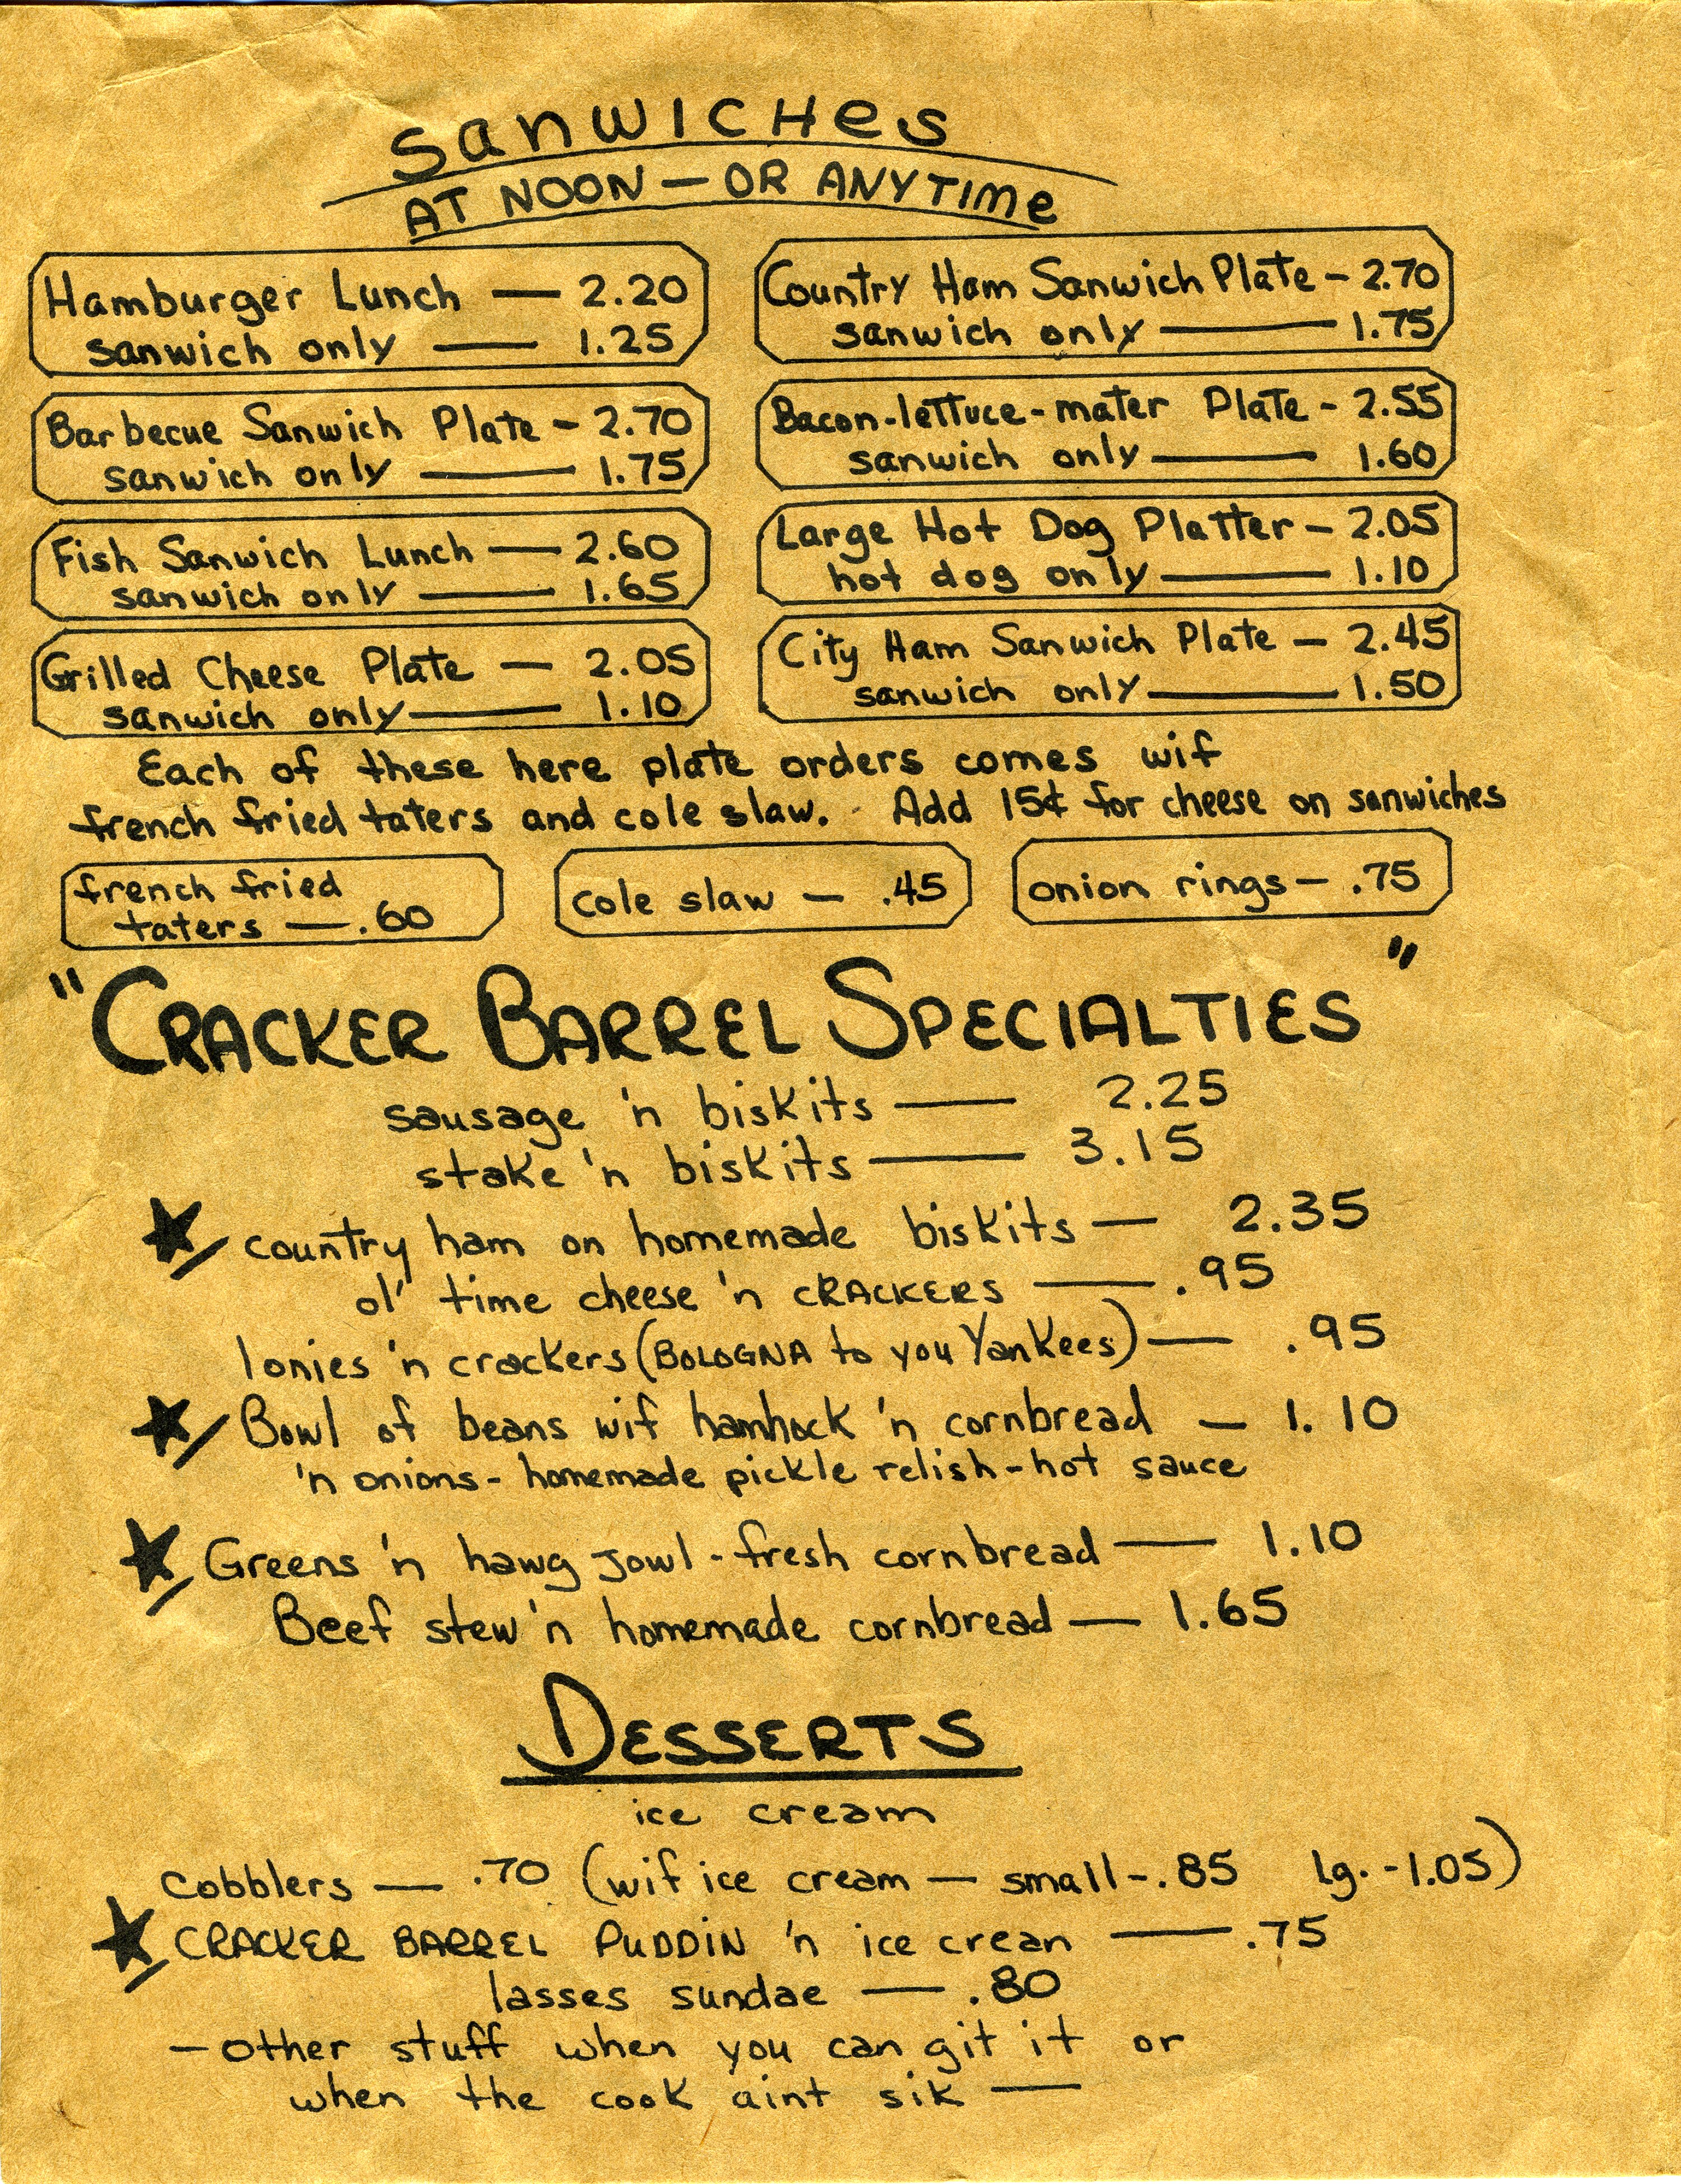 Sanwiches
AT NOON — OR ANYTIME
Hamburger Lunch — 2.20
sanwich only — 1.25
Country Ham Sanwich Plate - 2.70
sanwich only — 1.75
Barbecue Sanwich Plate - 2.70
sanwich only — 1.75
Bacon-lettuce-mater Plate - 2.55
sanwich only — 1.60
Fish Sanwich Lunch — 2.60
sanwich only — 1.65
Large Hot Dog Platter - 2.05
hot dog only — 1.10
Grilled Cheese Plate — 2.05
sanwich only — 1.10
City Ham Sanwich Plate — 2.45
sanwich only — 1.50
Each of these here plate orders comes wif
french fried taters and cole slaw. Add 15¢ for cheese on sanwiches
french fried
taters — .60
cole slaw — .45
onion rings — .75
"CRACKER BARREL SPECIALTIES"
sausage 'n biskits — 2.25
stake 'n biskits — 3.15
country ham on homemade biskits — 2.35
ol' time cheese 'n CRACKERS — .95
lonies 'n crackers (BOLOGNA to you Yankees) — .95
Bowl of beans wif hamhock 'n cornbread — 1.10
'n onions - homemade pickle relish - hot sauce
Greens 'n hawg jowl - fresh cornbread — 1.10
Beef stew 'n homemade cornbread — 1.65
DESSERTS
ice cream
Cobblers — .70 (wif ice cream — small - .85 lg. - 1.05)
CRACKER BARREL PUDDIN 'n ice crean — .75
lasses sundae — .80
— other stuff when you can git it or
when the cook aint sik —